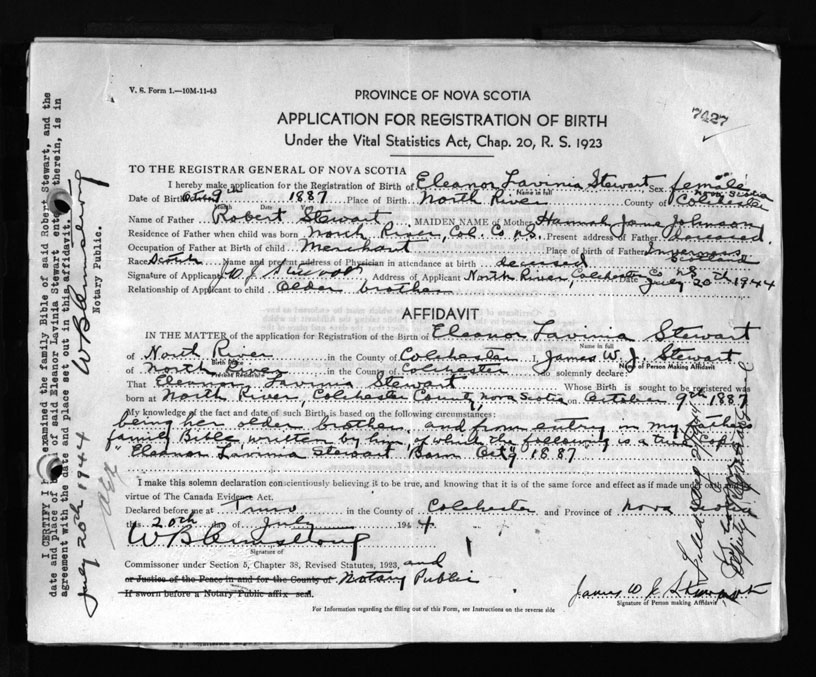 V. S. Form 1.—10M-11-43
PROVINCE OF NOVA SCOTIA
7027
APPLICATION FOR REGISTRATION OF BIRTH
Under the Vital Statistics Act, Chap. 20, R. S. 1923
TO THE REGISTRAR GENERAL OF NOVA SCOTIA
I hereby make application for the Registration of Birth of Eleanor Lavinia Stewart Sex female
Name in full
Nova Scotia
Date of Birth 9th 1887 Place of Birth North River County of Colchester
Name of Father Robert Stewart MAIDEN NAME of Mother Hannah Jane Johnson
Residence of Father when child was born North River, Col. Co. N.S. Present address of Father deceased
Occupation of Father at Birth of child Merchant Place of birth of Father
Race Scotch Name and present address of Physician in attendance at birth deceased
Signature of Applicant W. J. Stewart Address of Applicant North River, Colchester Co. N.S. Date July 20th 1944
Relationship of Applicant to child Older brother
AFFIDAVIT
IN THE MATTER of the application for Registration of the Birth of Eleanor Lavinia Stewart
Name in full
of North River in the County of Colchester I, James W. J. Stewart
Birth Place
Name of Person Making Affidavit
of North River in the County of Colchester do solemnly declare:
That Eleanor Lavinia Stewart Whose Birth is sought to be registered was
born at North River, Colchester County, Nova Scotia on October 9th 1887
My knowledge of the fact and date of such Birth is based on the following circumstances:
being her older brother, and from entry in my father's
family Bible, written by him, of which the following is a true copy
"Eleanor Lavinia Stewart Born Oct 9 1887"
I make this solemn declaration conscientiously believing it to be true, and knowing that it is of the same force and effect as if made under oath and by
virtue of The Canada Evidence Act.
Declared before me at Truro in the County of Colchester and Province of Nova Scotia
this 20th day of July 1944.
Signature of
Commissioner under Section 5, Chapter 38, Revised Statutes, 1923, and
or Justice of the Peace in and for the County of Notary Public
If sworn before a Notary Public affix seal.
James W. J. Stewart
Signature of Person making Affidavit
For Information regarding the filling out of this Form, see Instructions on the reverse side
I CERTIFY I examined the family Bible of said Robert Stewart, and the
date and place of of said Eleanor Lavinia Stewart therein, is in
agreement with the date and place set out in this affidavit.
Notary Public.
July 20th 1944